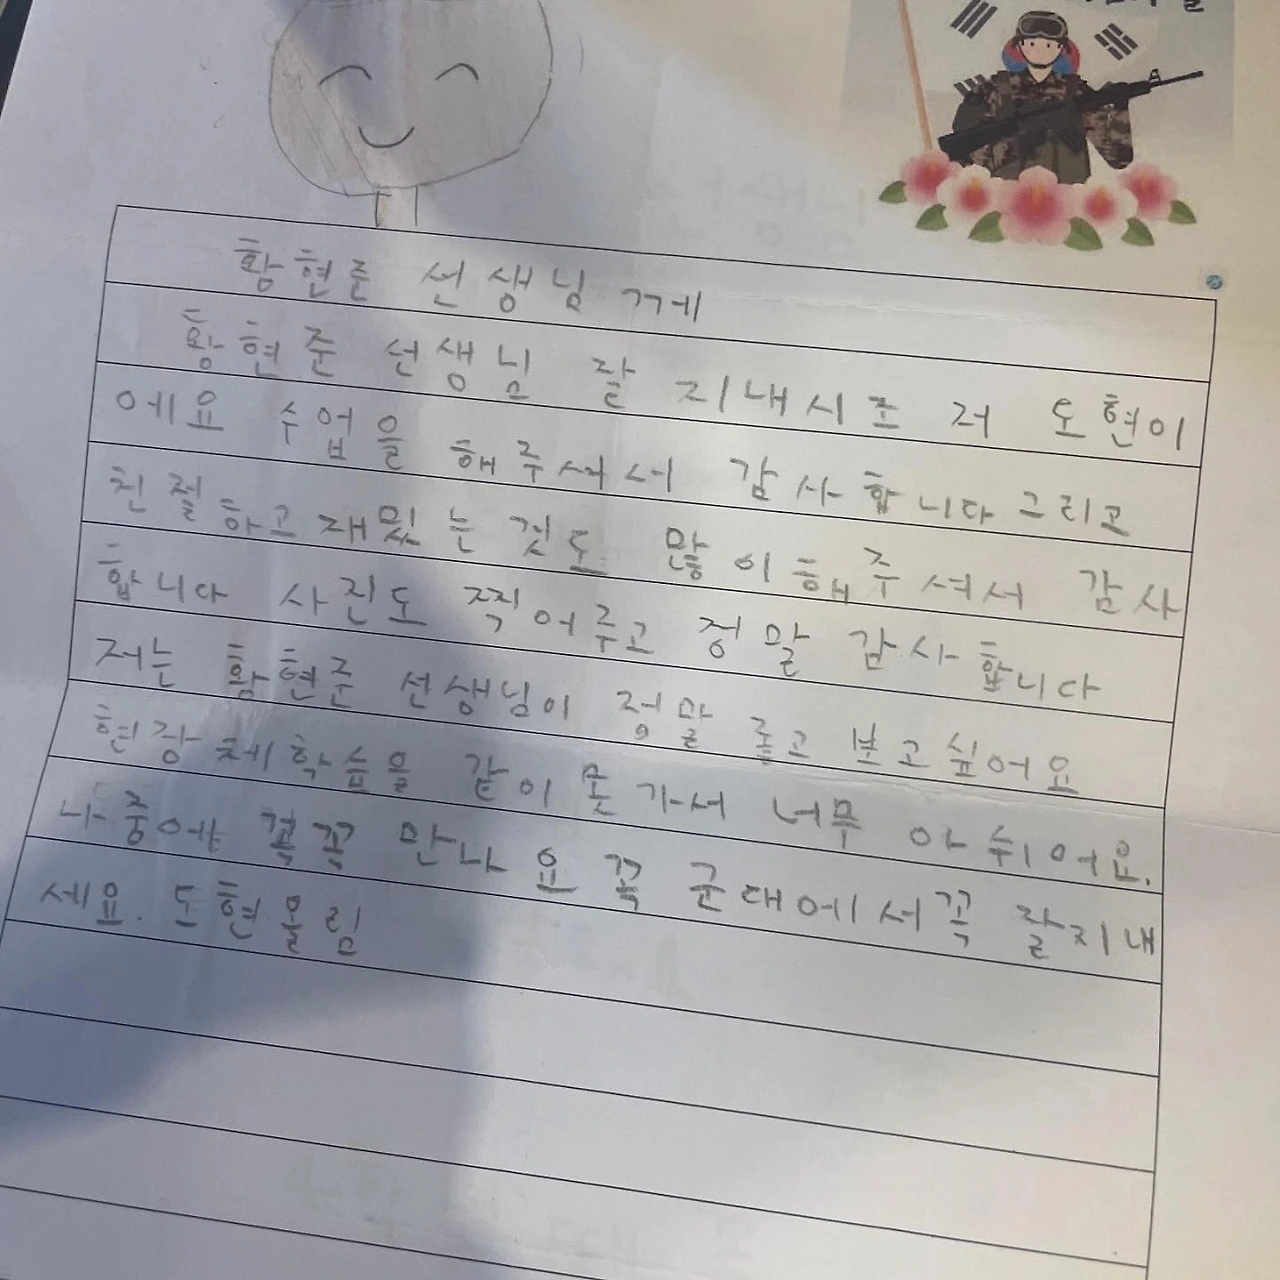 황현준 선생님 께
황현준 선생님 잘 지내시죠 저 도현이
에요 수업을 해주셔서 감사합니다 그리고
친절하고 재밌는 것도 많이 해주셔서 감사
합니다 사진도 찍어주고 정말 감사합니다
저는 황현준 선생님이 정말 좋고 보고싶어요
현장체학습을 같이 못가서 너무 아쉬어요.
나중에 꼭꼭 만나요 꼭 군대에서 꼭 잘지내
세요. 도현올림